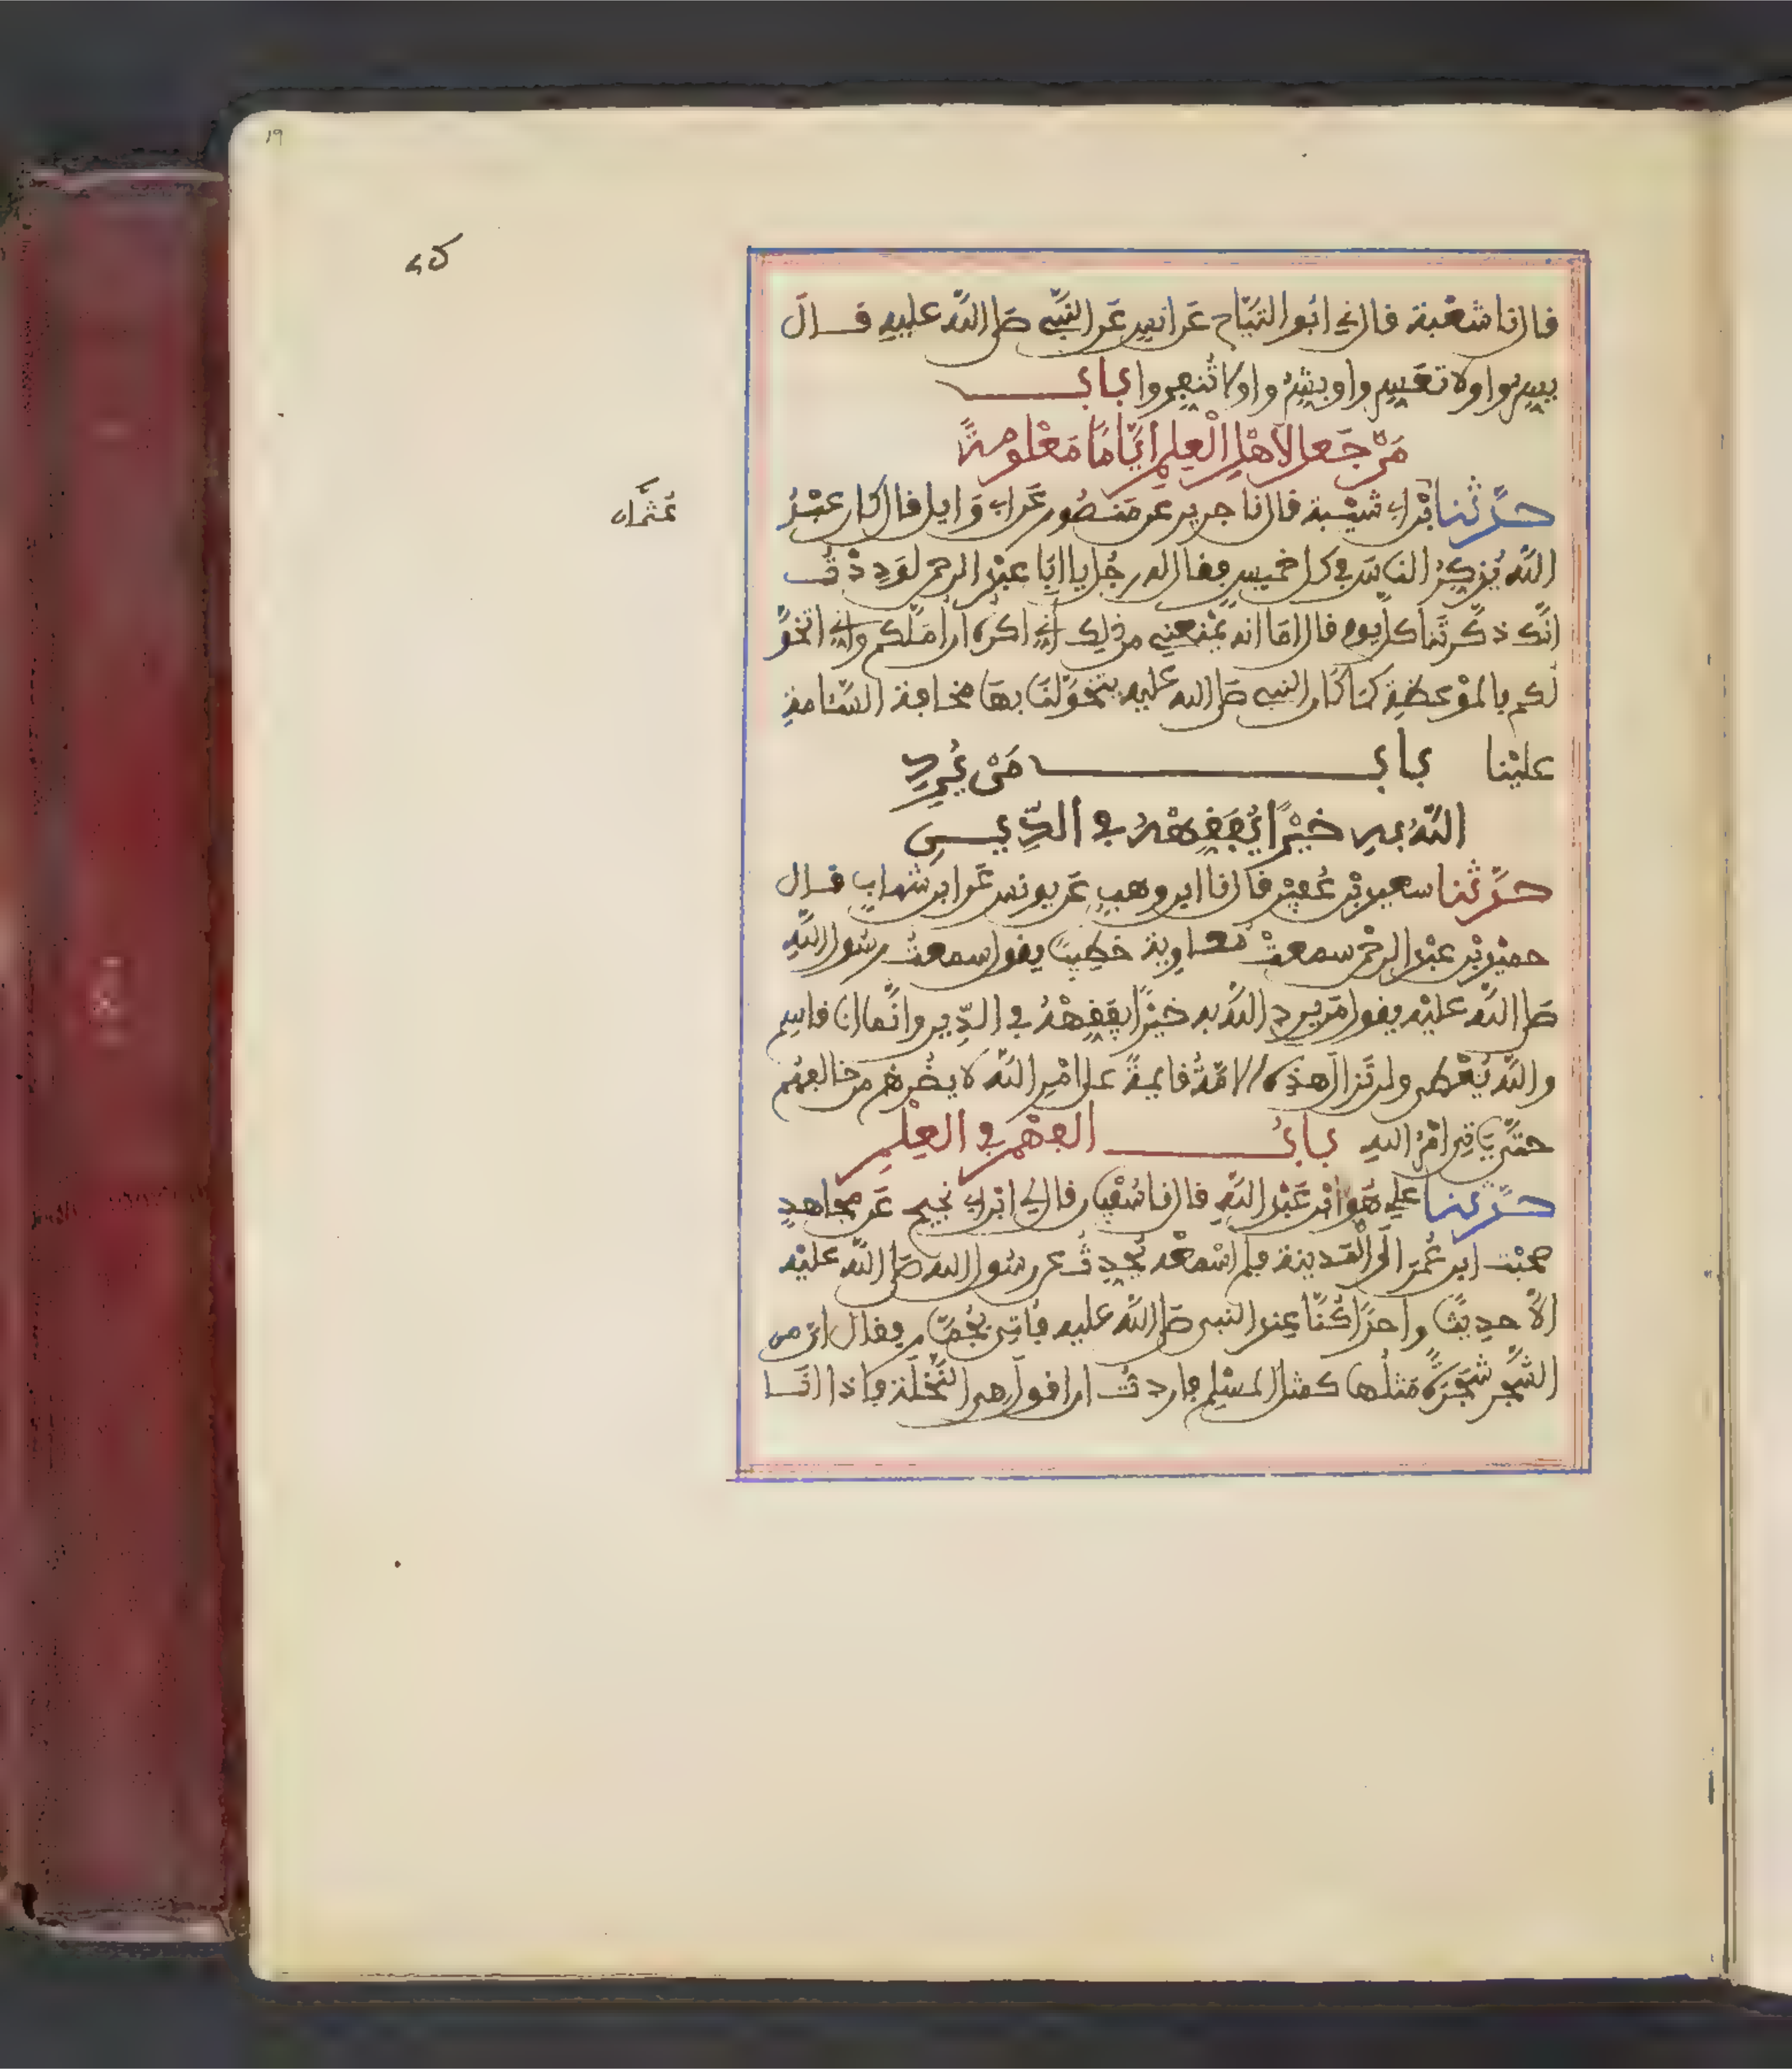 قال نا شعبة قال ني ابو التيّاح عَن انسٍ عَن النبّيِ صَلى اللّه عليهِ قـال
يسِّروا ولا تعَسِّروا وبشِّرُوا ولا تُنفِّروا بابٌ
مَنْ جَعل لأهْلِ الْعِلمِ أيَّامًا مَعْلومةً
حدَّثنا ابْن ابي شيْبة قال نا جرير عَن مَنصُور عَن ابي وَايل قال كان عبْدُ
اللّه يُذكِّرُ الناسَ في كل خميسٍ فقال له رجُل يا ابَا عبْد الرحمن لوَدِدْتُ
انَّك ذكَّرتَنا كلَّ يوم قال امَا انه يمْنعني من ذلِك أنّي اكرَه أن أملَّكم وإني اتخوَّ
لكم بالموْعظةِ كمَا كَان النبي صَلى الله عليه يتخوَّلنَا بهَا مخافة السَّئامةِ
عليْنا بابٌ مَنْ يُرِدِ
اللّهُ بهِ خيْرًا يُفقِّهْهُ في الدِّينِ
حدَّثنا سعيد بْن عُفيْر قال نا ابن وهبٍ عَن يونس عَن ابن شهابٍ قال
حميْد بْن عبْد الرحمن سمعتْ معاوية خطِيبًا يقول سمعتُ رسُول اللّهِ
صَلى اللّه عليْه يقول مَن يرد اللّهُ به خيْرًا يفقِّهْهُ في الدِّين وانَّما انا قاسِم
واللّه يُعْطي ولن تَزالَ هذِه الامّةُ قايمةً على امْرِ اللّه لا يضُرهُم من خالفهُم
حتَّى يَاتي امْرُ اللهِ بابُ الفهْمِ في العِلْمِ
حدَّثنا علي هُوَ ابْن عَبْد اللّهِ قال نا سُفْيان قال لي ابْن ابي نجيح عَن مجاهدٍ
صحبْت ابن عُمَر الَى الْمَدينة فلم اسْمعْه يُحدِّث عن رسُول الله صَلى اللّه عليْه
الاَّ حدِيثًا واحدًا كُنَّا عِند النبي صَلى اللّه عليه فأتي بجُمَّار فقال ان من
الشَّجر شجَرةً مَثلُها كمثل المسْلِم فاردتُ ان اقولَ هي النَّخلَة فاذا انَـا
عثمان
19